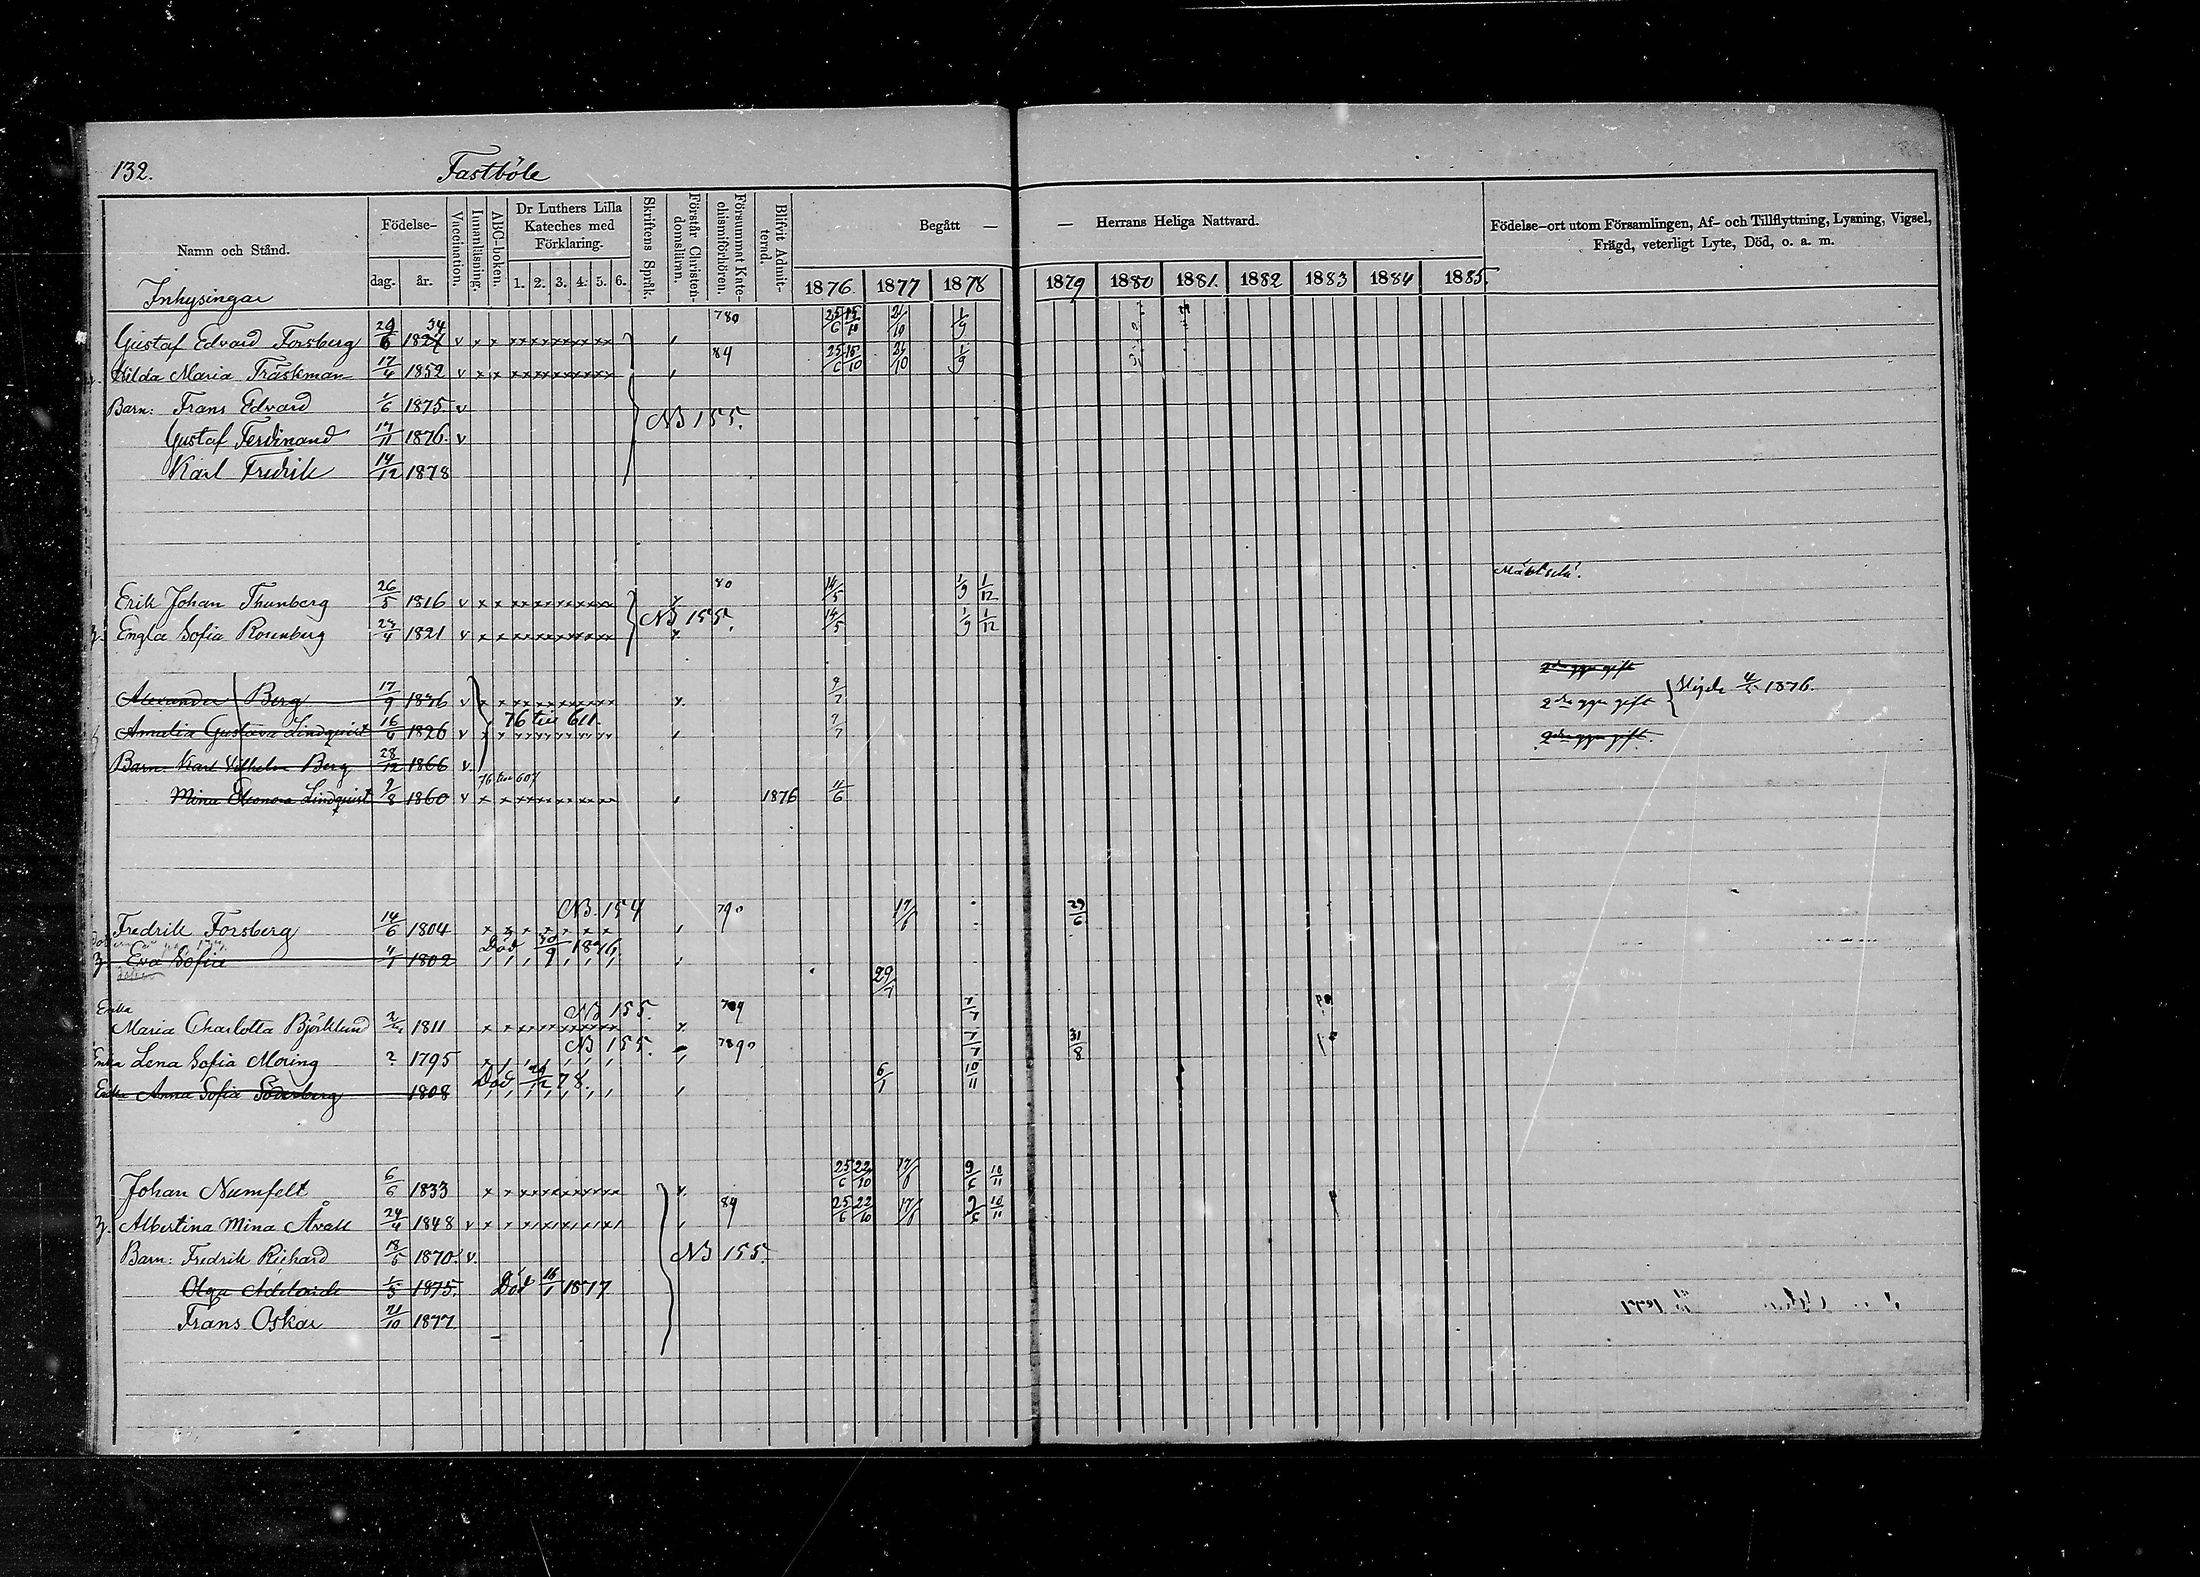 132. Fastböle
Namn och Stånd. Födelse- dag. år. Vaccination. Innanläsning. ABC-boken. Dr Luthers Lilla Kateches med Förklaring. 1. 2. 3. 4. 5. 6. Skriftens Språk. Förstår Christendomsläran. Försummat Katechismiförhören. Blifvit Admitterad. Begått — — Herrans Heliga Nattvard. Födelse-ort utom Församlingen, Af- och Tillflyttning, Lysning, Vigsel, Frägd, veterligt Lyte, Död, o. a. m.
1876. 1877 1878 1879 1880 1881. 1882 1883 1884 1885.
Inhysingar
Gustaf Edvard Forsberg 780 25/6 15/10 21/10 1/9
Hilda Maria Träskman 17/4 1852 v 84 25/6 15/10 21/10 1/9
Barn: Frans Edvard 1875 v
NB 155.
Gustaf Ferdinand 17/11 1876 v
Karl Fredrik 14/12 1878
Erik Johan Thunberg 26/5 1816 v 80 14/5 1/9 1/12
NB 155.
Engla Sofia Rosenberg 23/4 1821 v 14/5 1/9 1/12
Alexander Berg 17/9 1836 v 9/7 2dra ggn gift Vigde 1876.
76 till 611.
Amalia Gustava Lindquist 16/4 1826 v 9/7 2dra ggn gift.
Barn: Karl Vilhelm Berg 28/12 1866 v.
76 till 607
Mina Eleonora Lindquist 9/8 1860 v 1876 4/6
NB. 154 790 17/6 29/6
Fredrik Forsberg 14/6 1804
Död 30/9 1876
Eva Sofia 4/1 1802
29/7
Enka NB 155.
Maria Charlotta Björklund 1811 7/7
NB 155. 7890 31/8
Enka Lena Sofia Moring ? 1795 7/7
Död 24/12 78. 6/1 10/11
Enka Anna Sofia Söderberg 1808
Johan Numfelt 6/6 1833 25/6 22/10 17/6 9/6 10/11
Albertina Mina Åvall 24/4 1848 v 84 25/6 22/10 17/6 9/6 10/11
Barn: Fredrik Richard 18/5 1870. v. NB 155.
Olga Adelaide 1875. Död 16/1 1877
Frans Oskar 21/10 1877